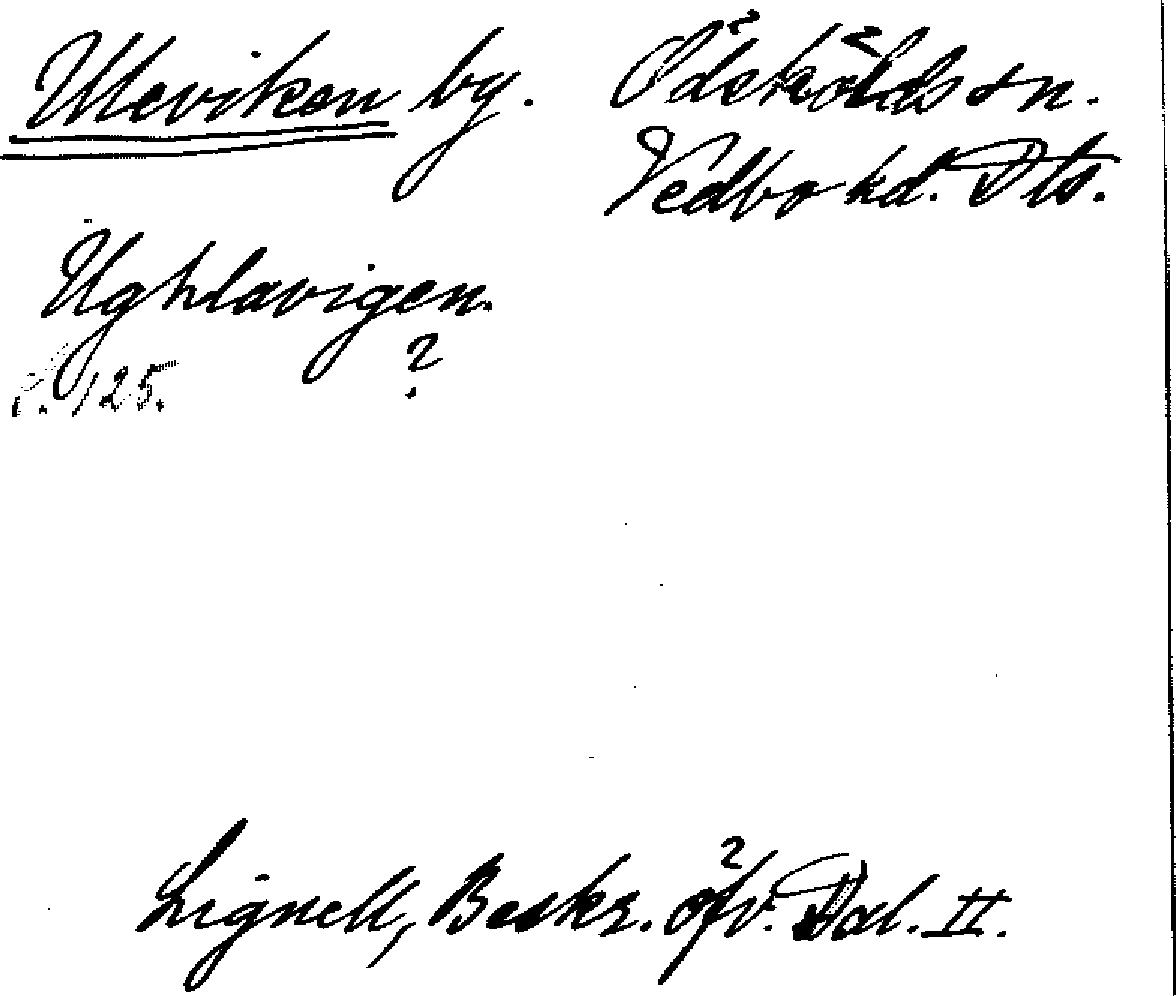 Uleviken by. Ödskölds sn.
Vedbo hd. Dls.
Ughlavigen.
s. 125. ?
Lignell, Beskr. öfv. Dal. II.